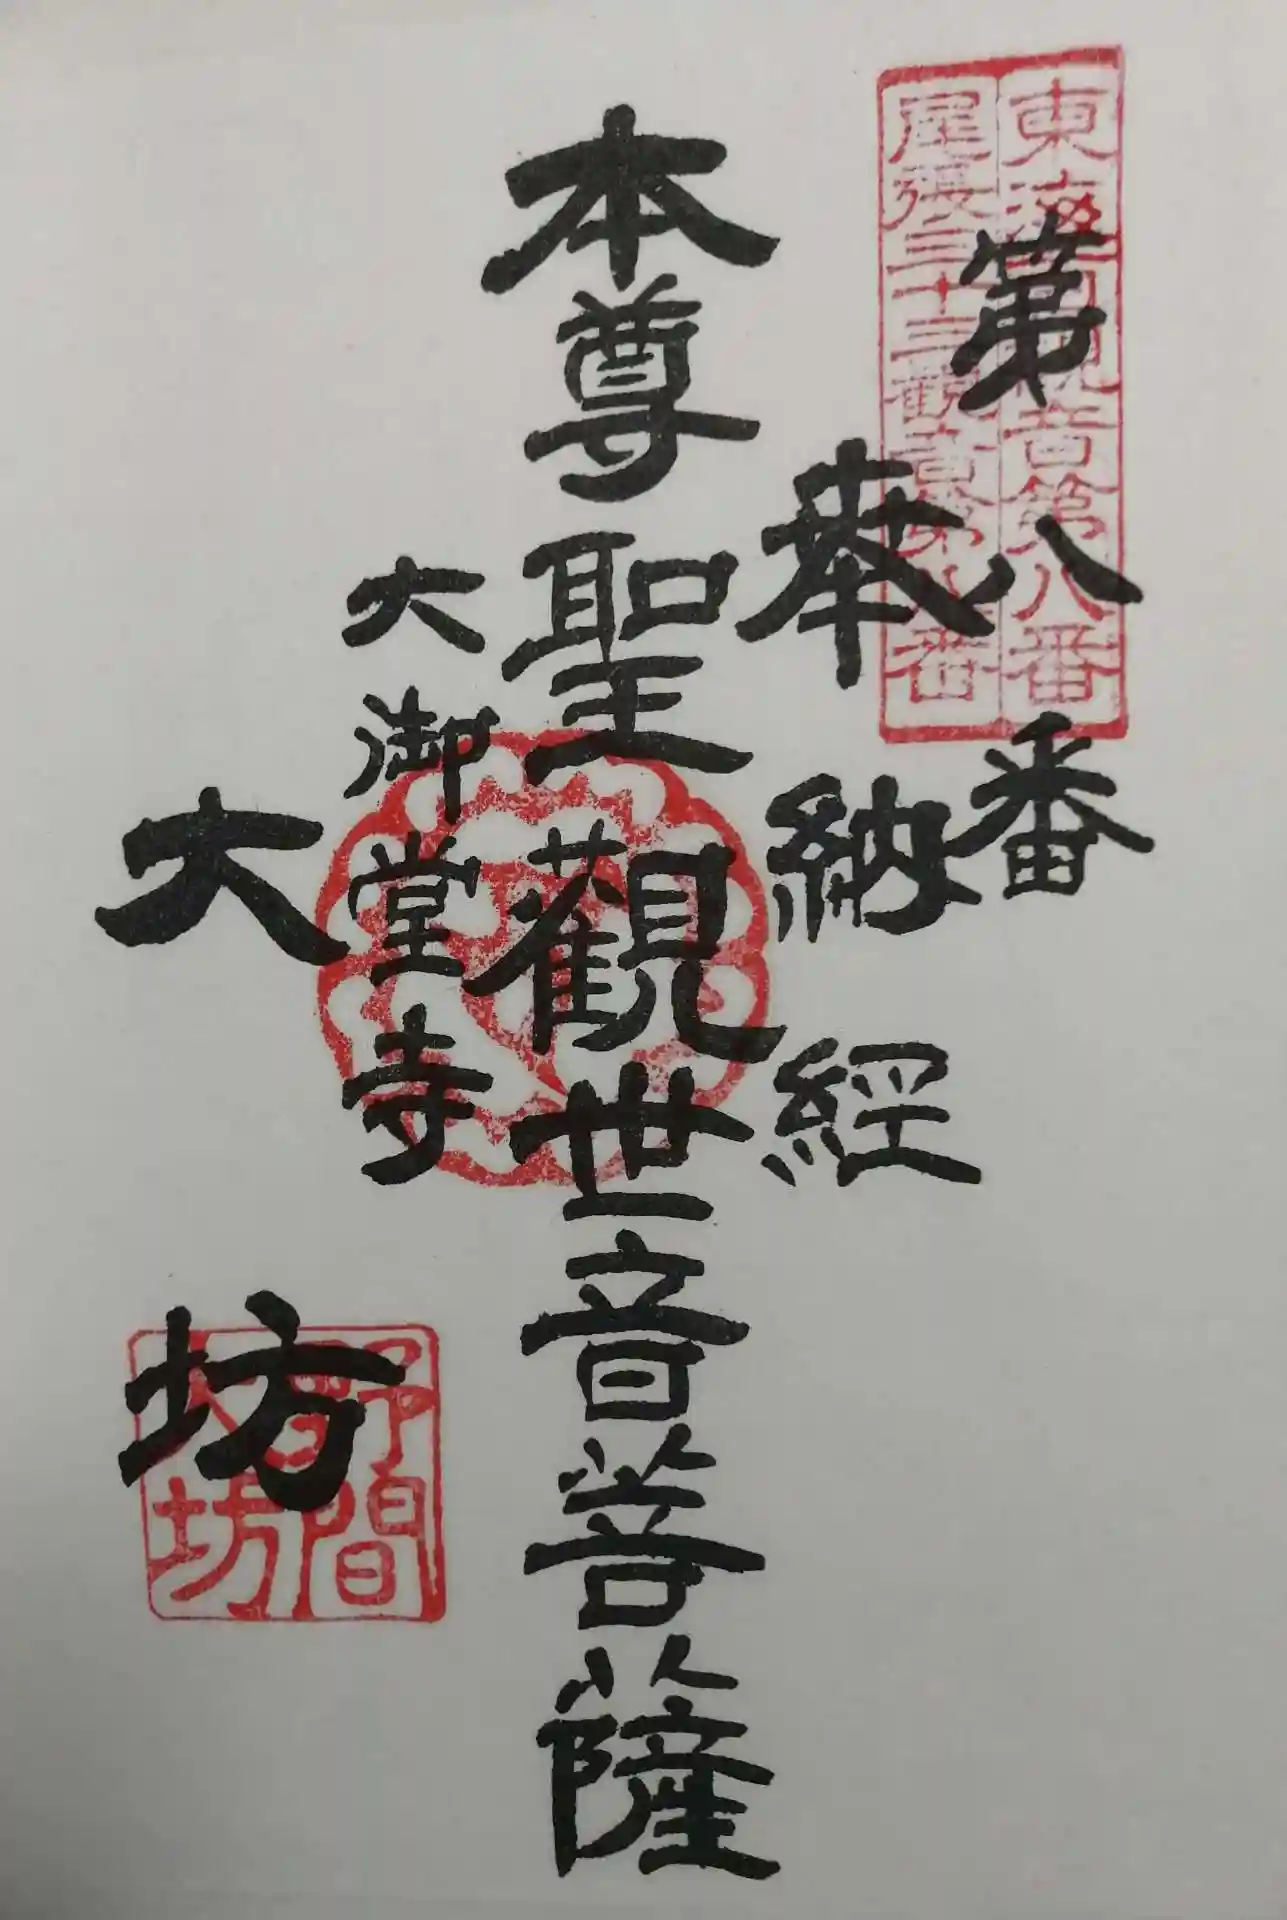 東海圓通觀音第八番
尾張三十三觀音第八番
第八番
奉納經
本尊聖觀世音菩薩
大御堂寺
大坊
野間
大坊